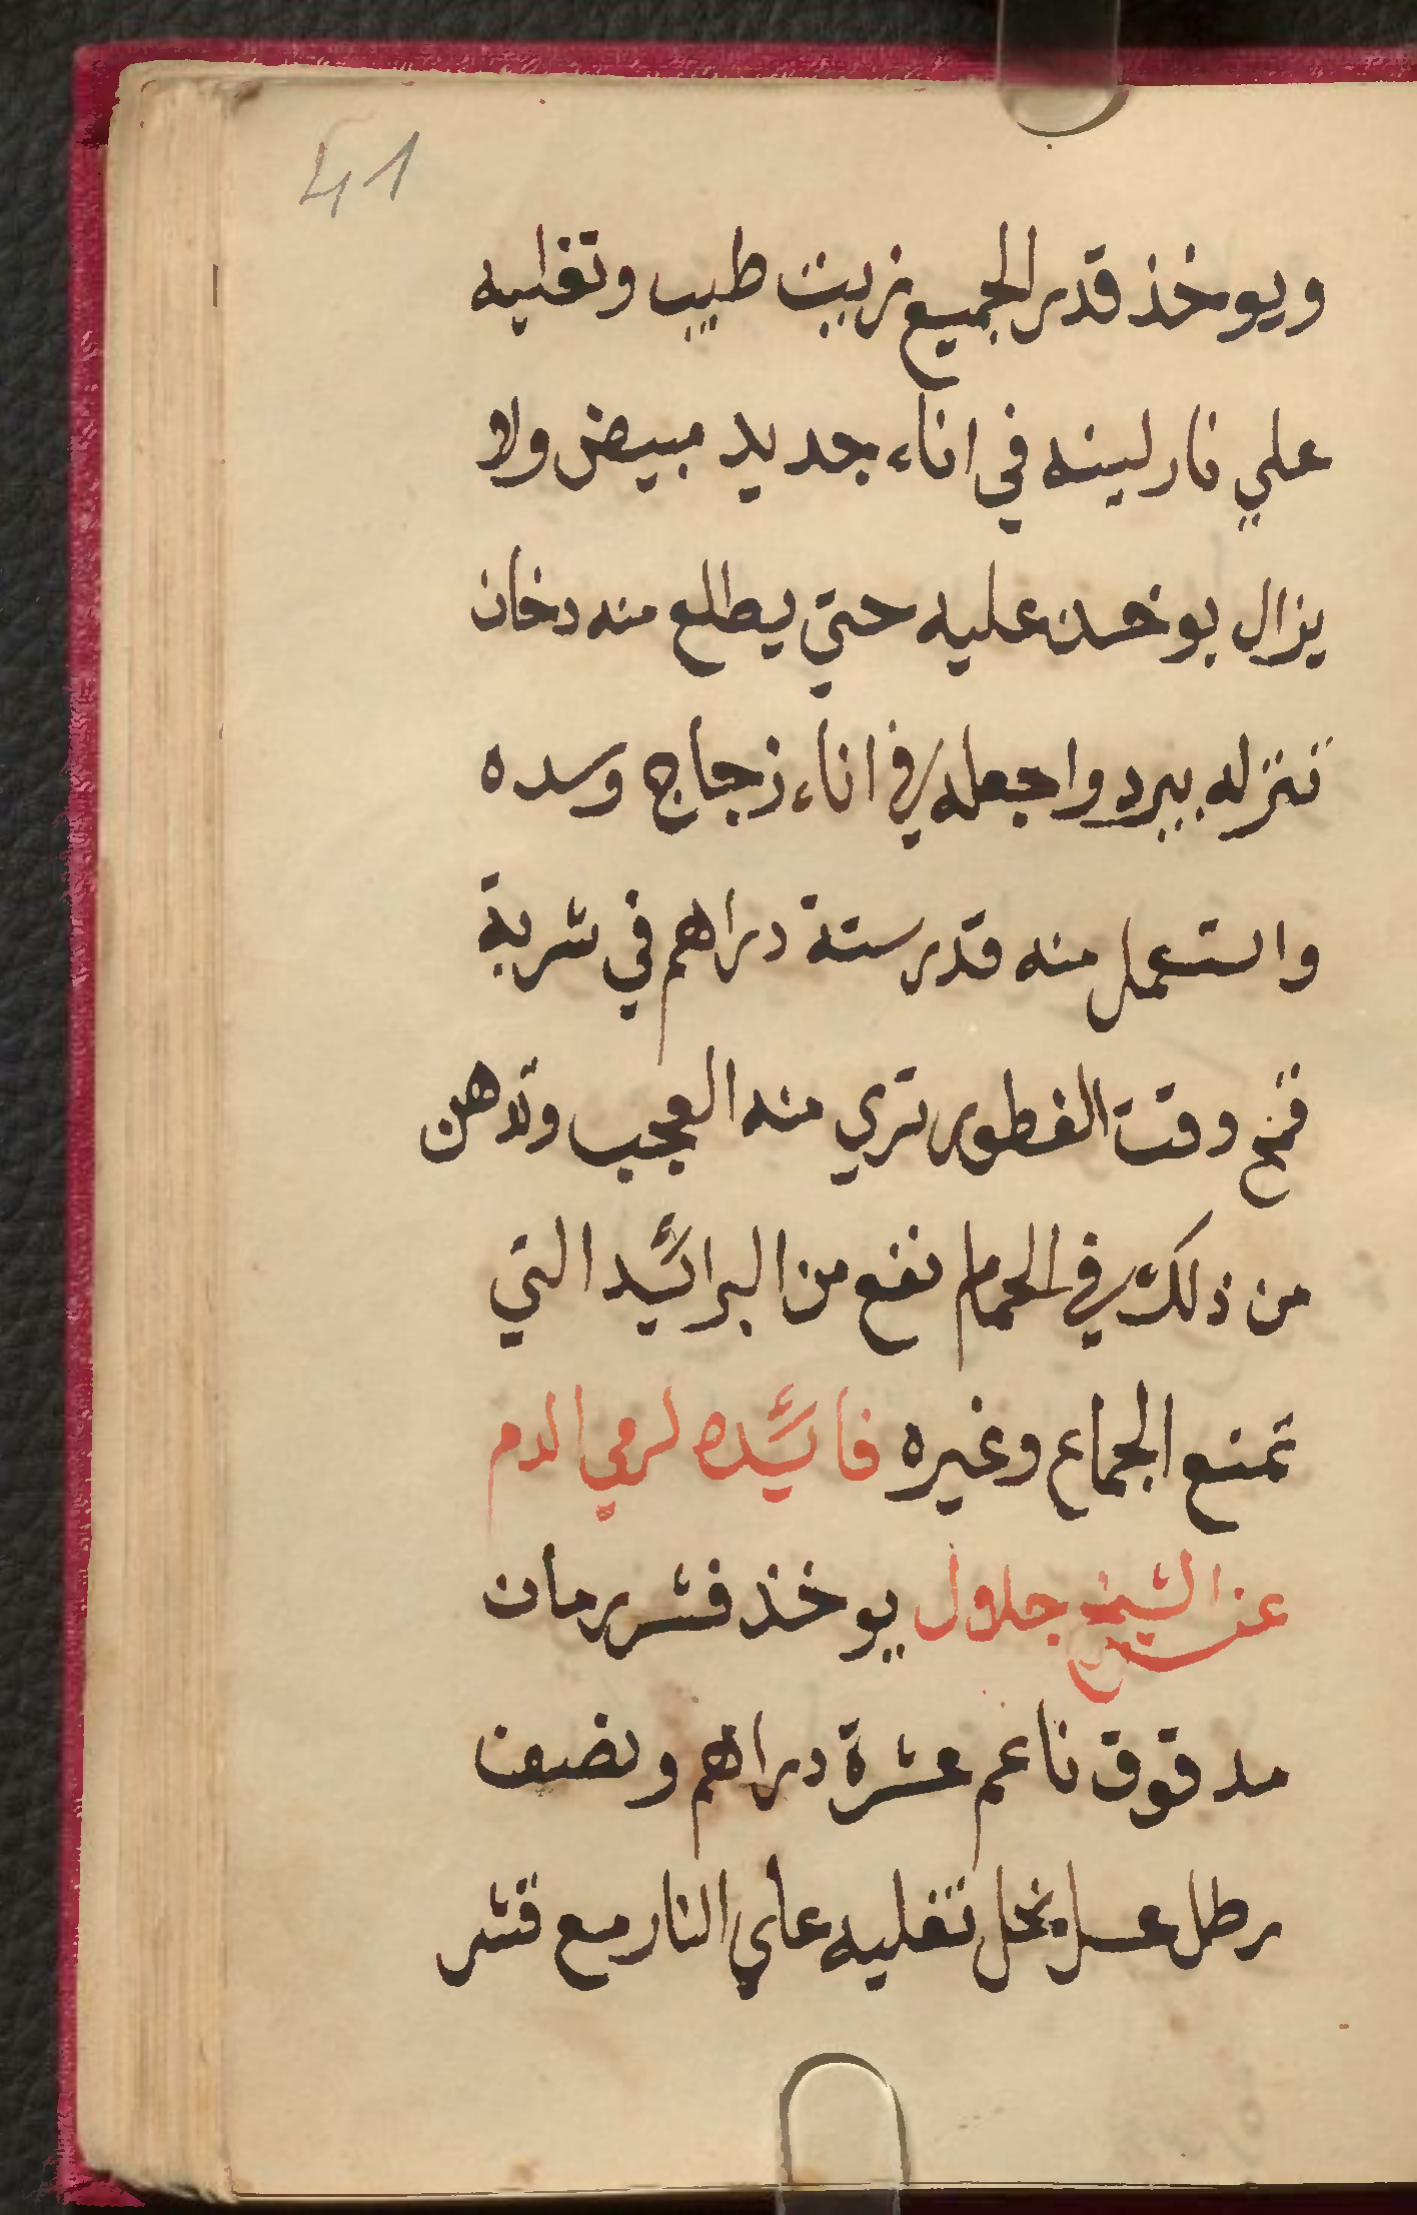 41
ويوخذ قدر الجميع زيت طيب وتغليه
علي نار لينه في اناء جديد مبيض ولا
يزال يوخد عليه حتي يطلع منه دخان
تنزله يبرد واجعله في اناء زجاج وسده
واستعمل منه قدر ستة دراهم في شربة
قمح وقت الفطور تري منه العجب وتدهن
من ذلك في الحمام نفع من البرائيد التي
تمنع الجماع وغيره فائيده لرمي الدم
عن الشيخ جلال يوخذ قشر رمان
مدقوق ناعم عشرة دراهم ونصف
رطل عسل نحل تغليه علي النار مع قشر